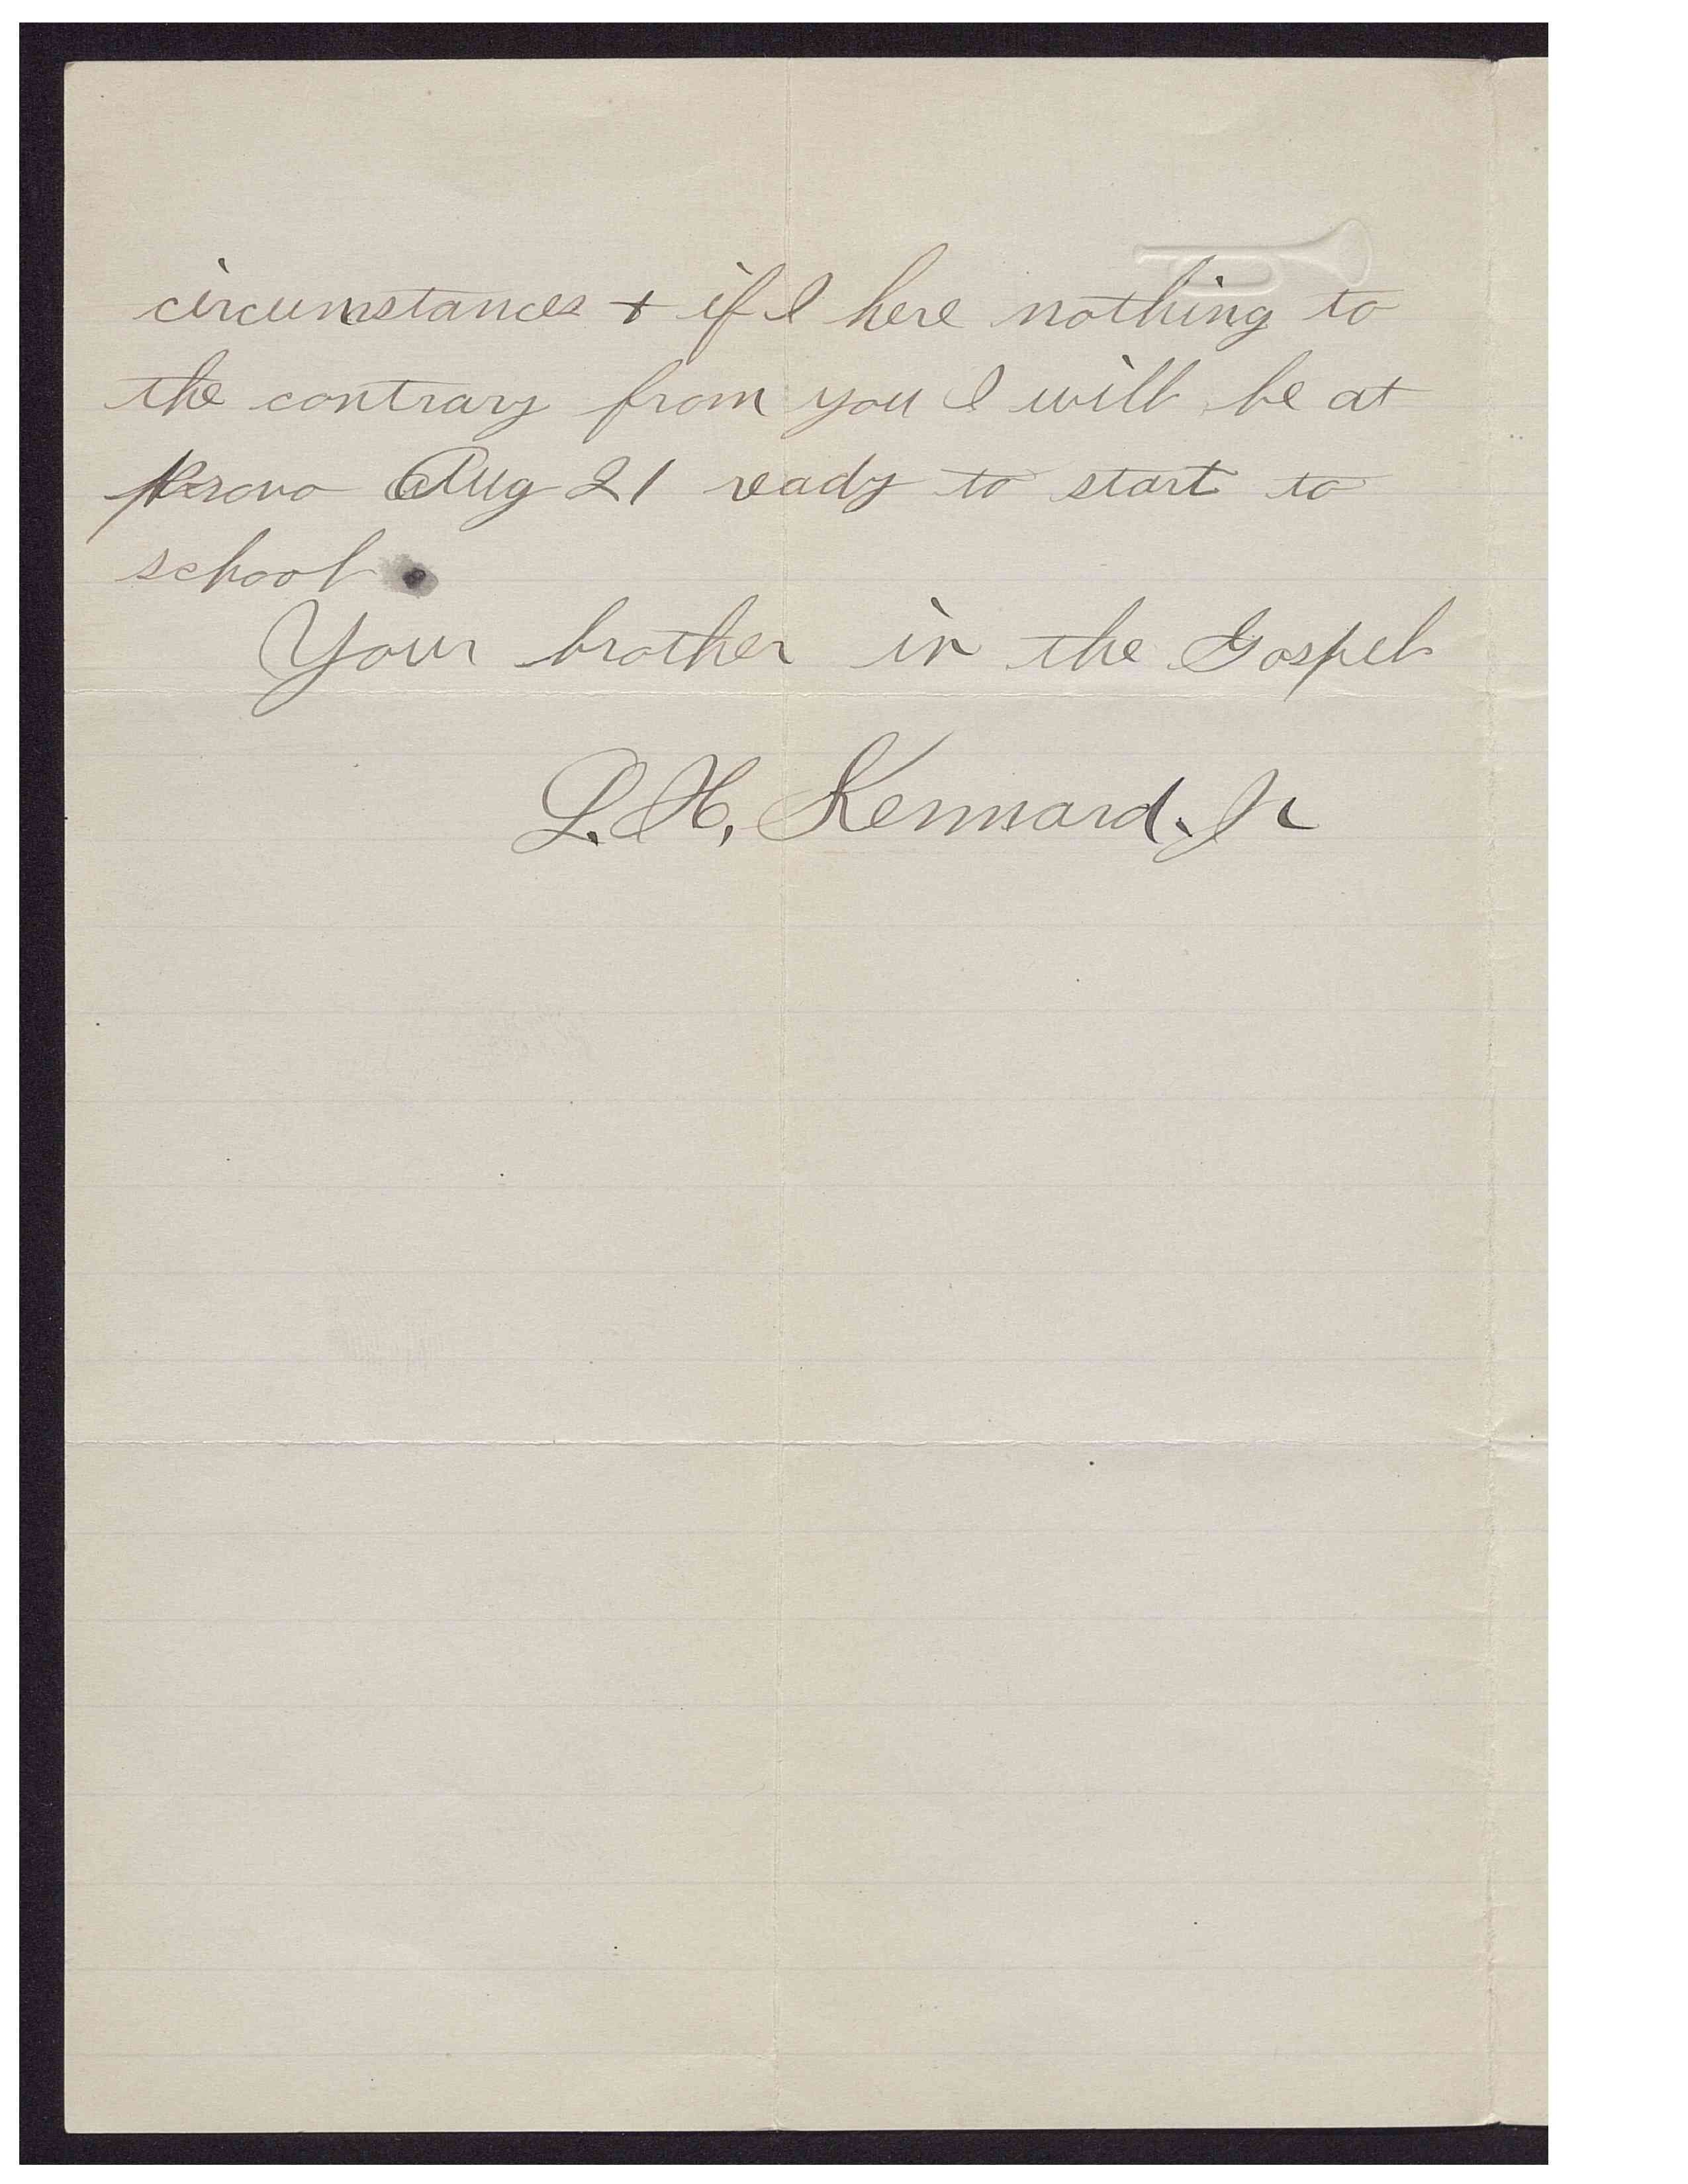 circumstances + if I here nothing to
the contrary from you I will be at
Provo Aug 21 ready to start to
school.
Your brother in the Gospel
L. H. Kennard. Jr